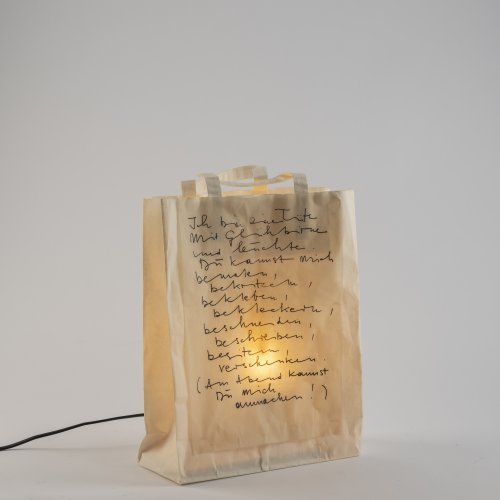 Ich bin eine Tüte
Mit Glühbirne
und leuchte.
Du kannst mich
bemalen,
bekritzeln,
bekleben,
bekleckern,
beschneiden,
beschreiben,
besitzen,
verschenken.
(Am Abend kannst
Du mich
anmachen!)